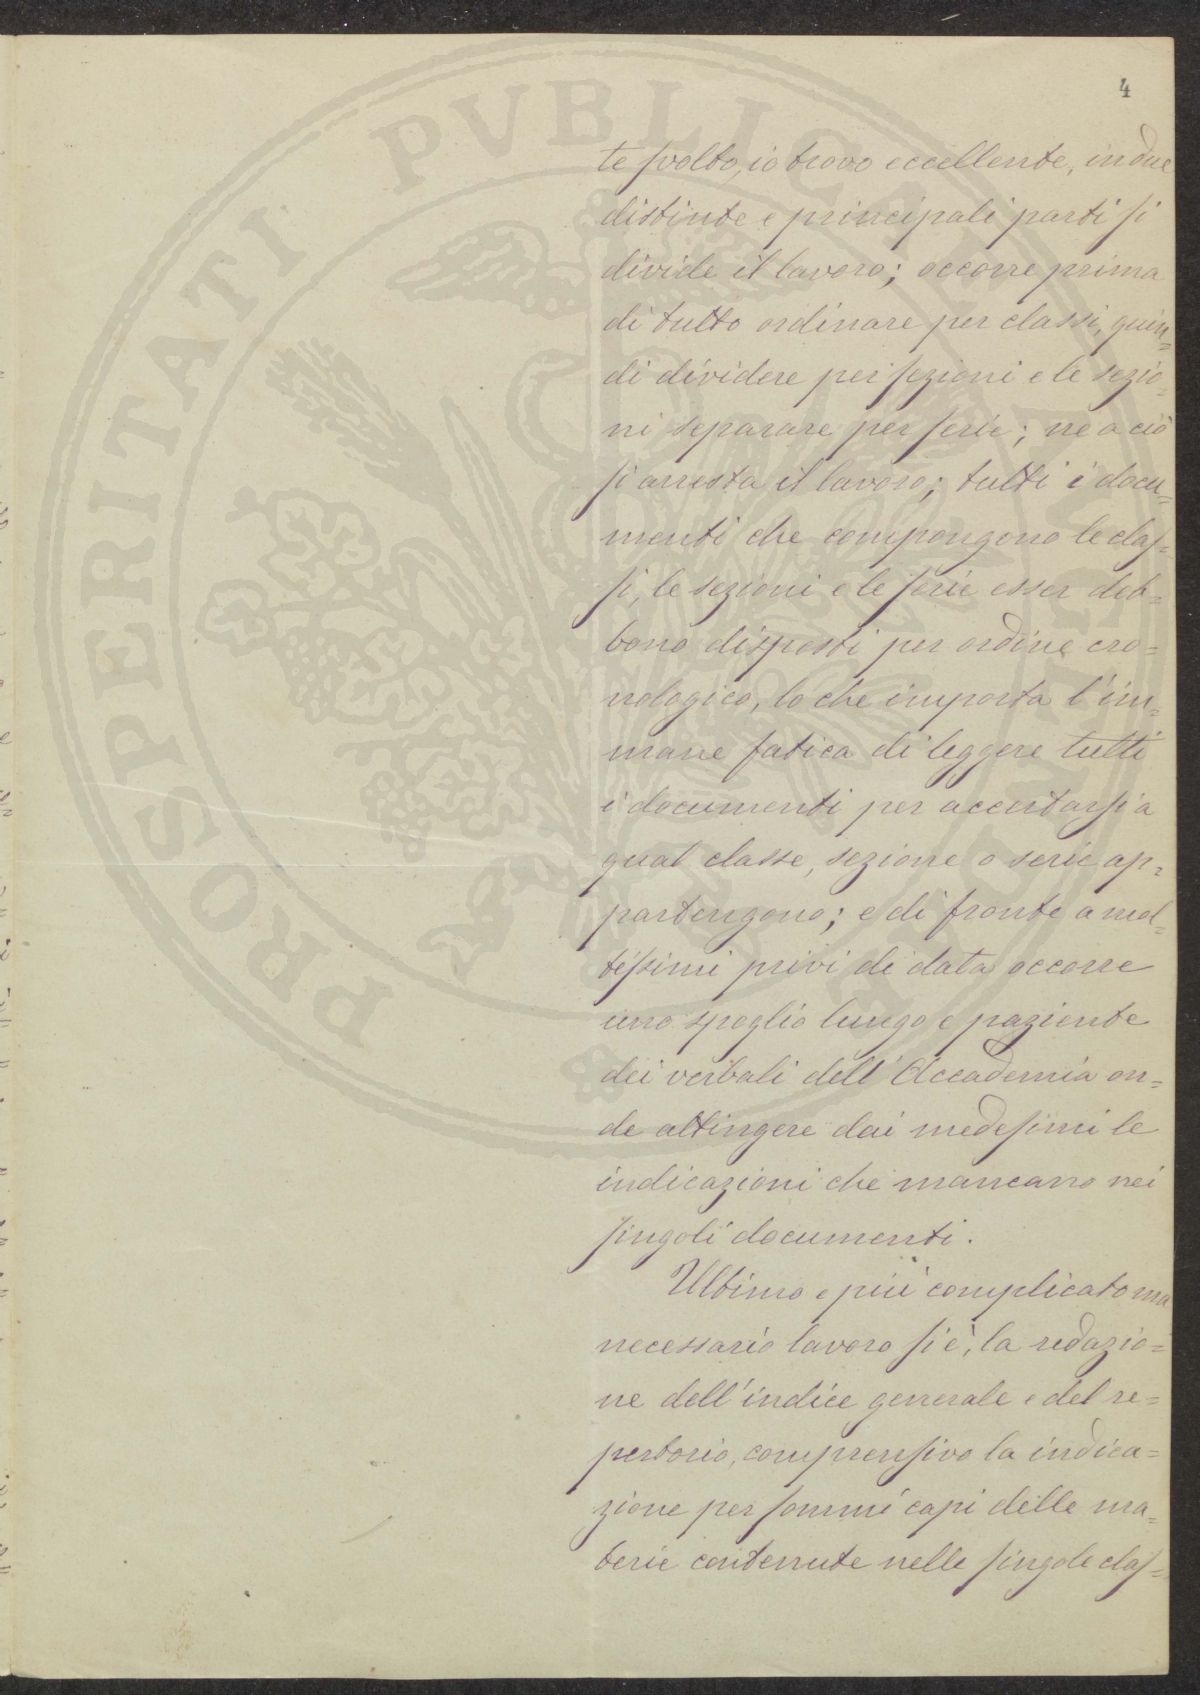 4
te svolto, io trovo eccellente, in due
distinte e principali parti si
divide il lavoro; occorre prima
di tutto ordinare per classi, quin=
di dividere per sezioni e le sezio=
ni separare per serie; ne a ciò
si arresta il lavoro; tutti i docu=
menti che compongono le clas=
si, le sezioni e le serie esser deb=
bono disposti per ordine cro=
nologico, lo che importa l'im=
mane fatica di leggere tutti
i documenti per accertarsi a
qual classe, sezione o serie ap=
partengono; e di fronte a mol=
tissimi privi di data occorre
uno spoglio lungo e paziente
dei verbali dell'Accademia on=
de attingere dai medesimi le
indicazioni che mancano nei
singoli documenti.
Ultimo e più complicato ma
necessario lavoro si è, la redazio=
ne dell'indice generale e del re=
pertorio, comprensivo la indica=
zione per sommi capi delle ma=
terie contenute nelle singole clas=
PROSPERITATI PVBLICAE